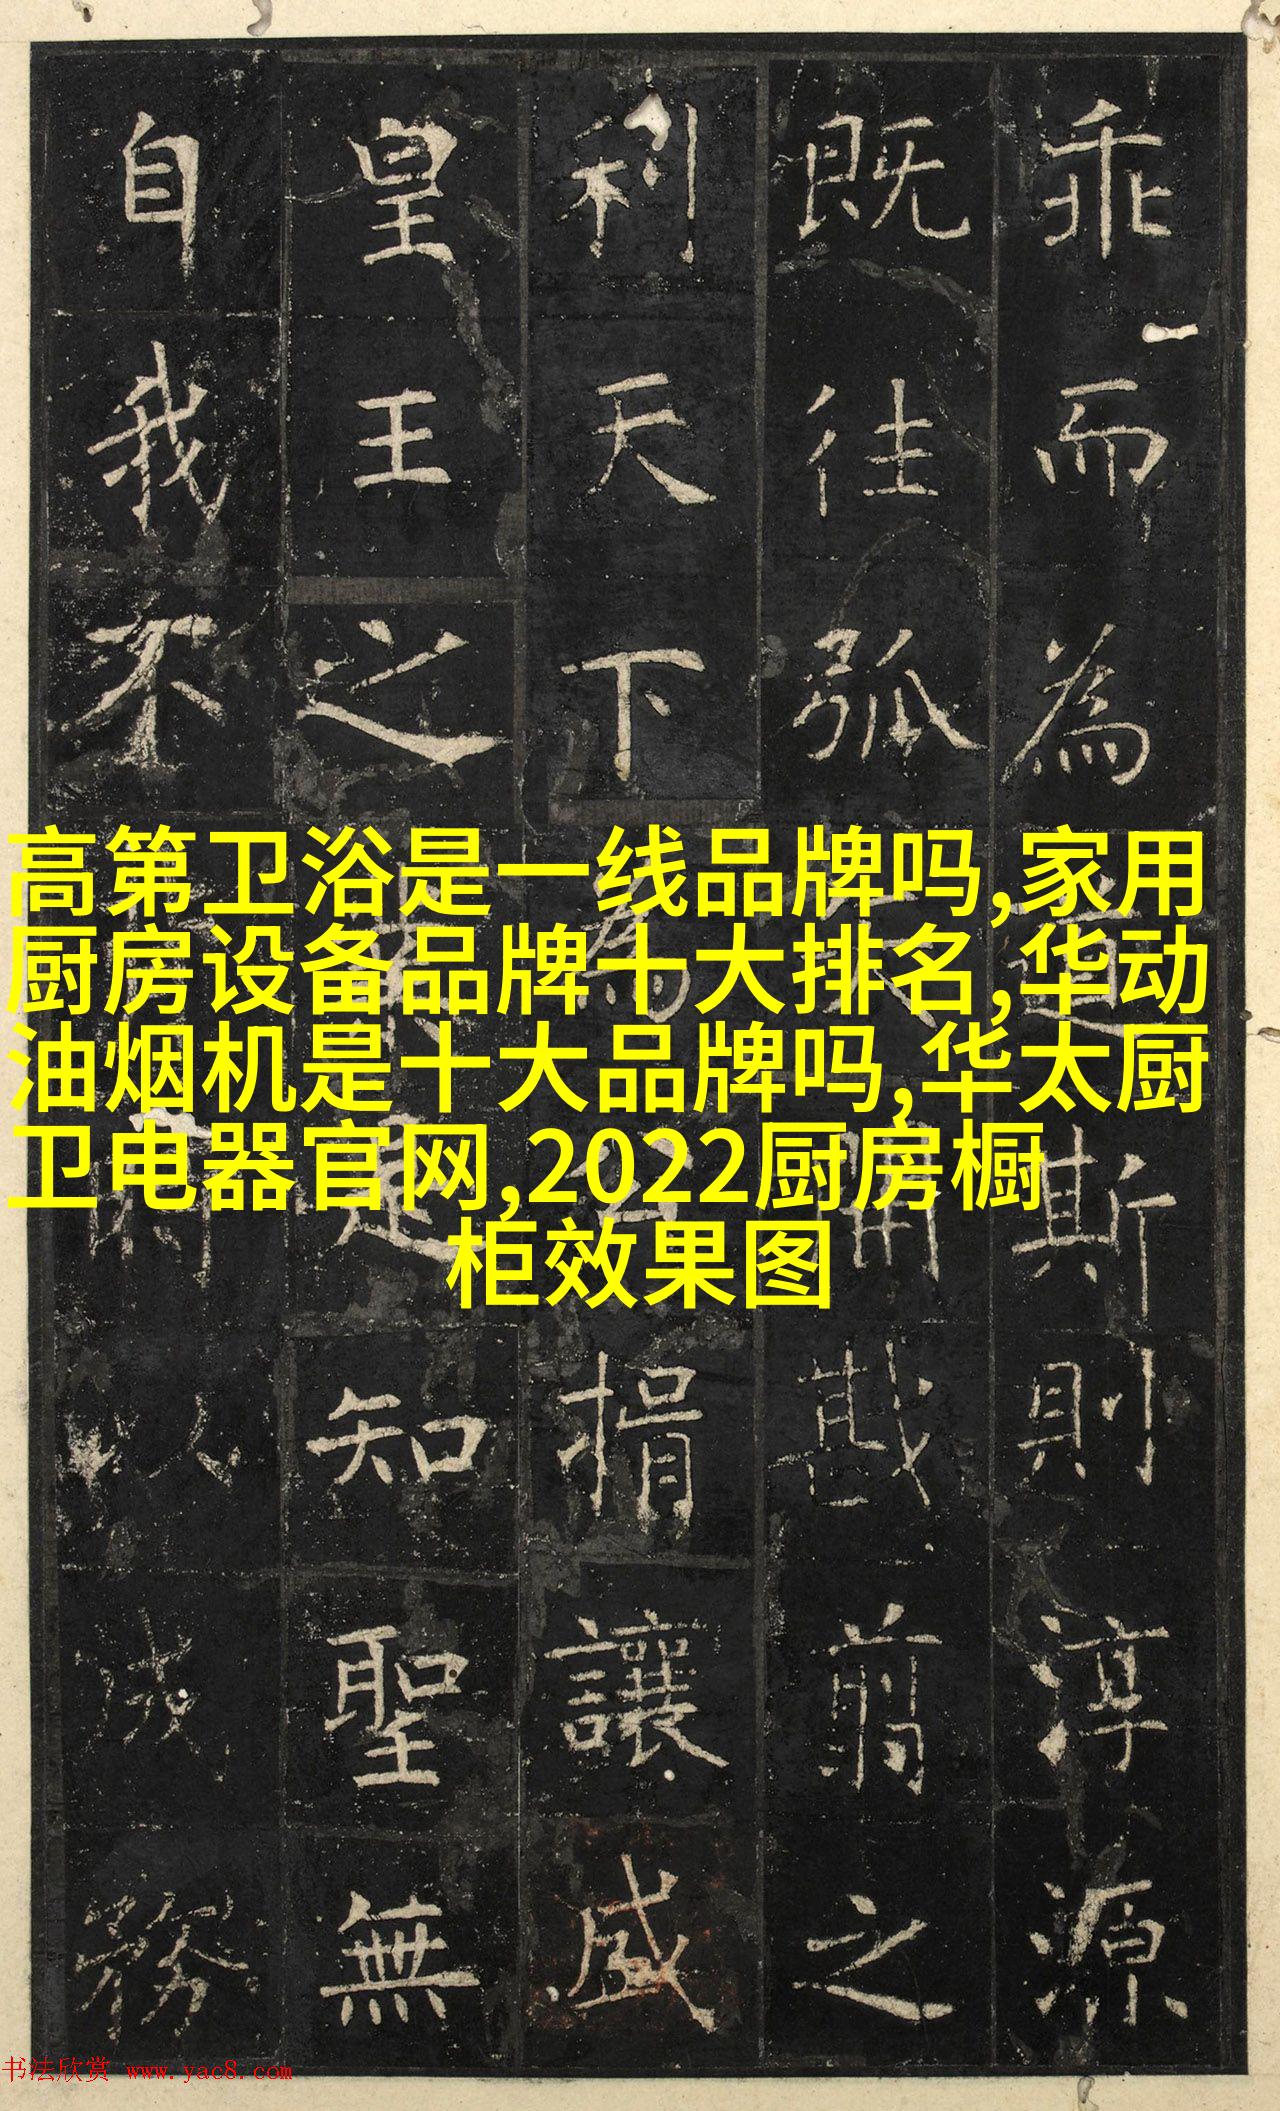 乖而為斯則淳源
既往弧戡翦之
利天下為捐讓咸
皇王之知聖無
自我不務
高第卫浴是一线品牌吗,家用
厨房设备品牌十大排名,华动
油烟机是十大品牌吗,华太厨
卫电器官网,2022厨房橱
柜效果图
书法欣赏 www.yac8.com